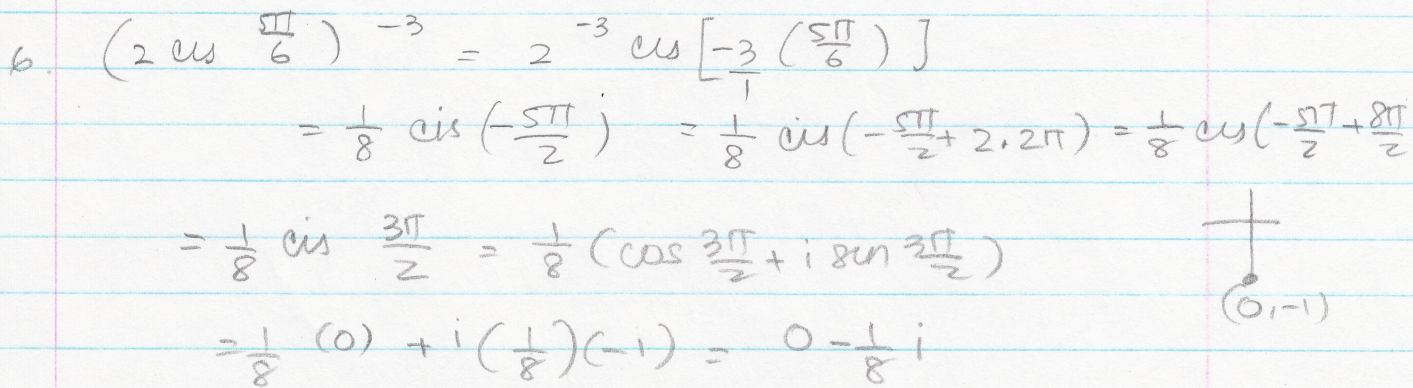 6. (2 cis 5π/6)^-3 = 2^-3 cis [-3/1 (5π/6)]
= 1/8 cis (-5π/2) = 1/8 cis (-5π/2 + 2·2π) = 1/8 cis (-5π/2 + 8π/2
= 1/8 cis 3π/2 = 1/8 (cos 3π/2 + i sin 3π/2)
(0,-1)
= 1/8 (0) + i (1/8)(-1) = 0 - 1/8 i